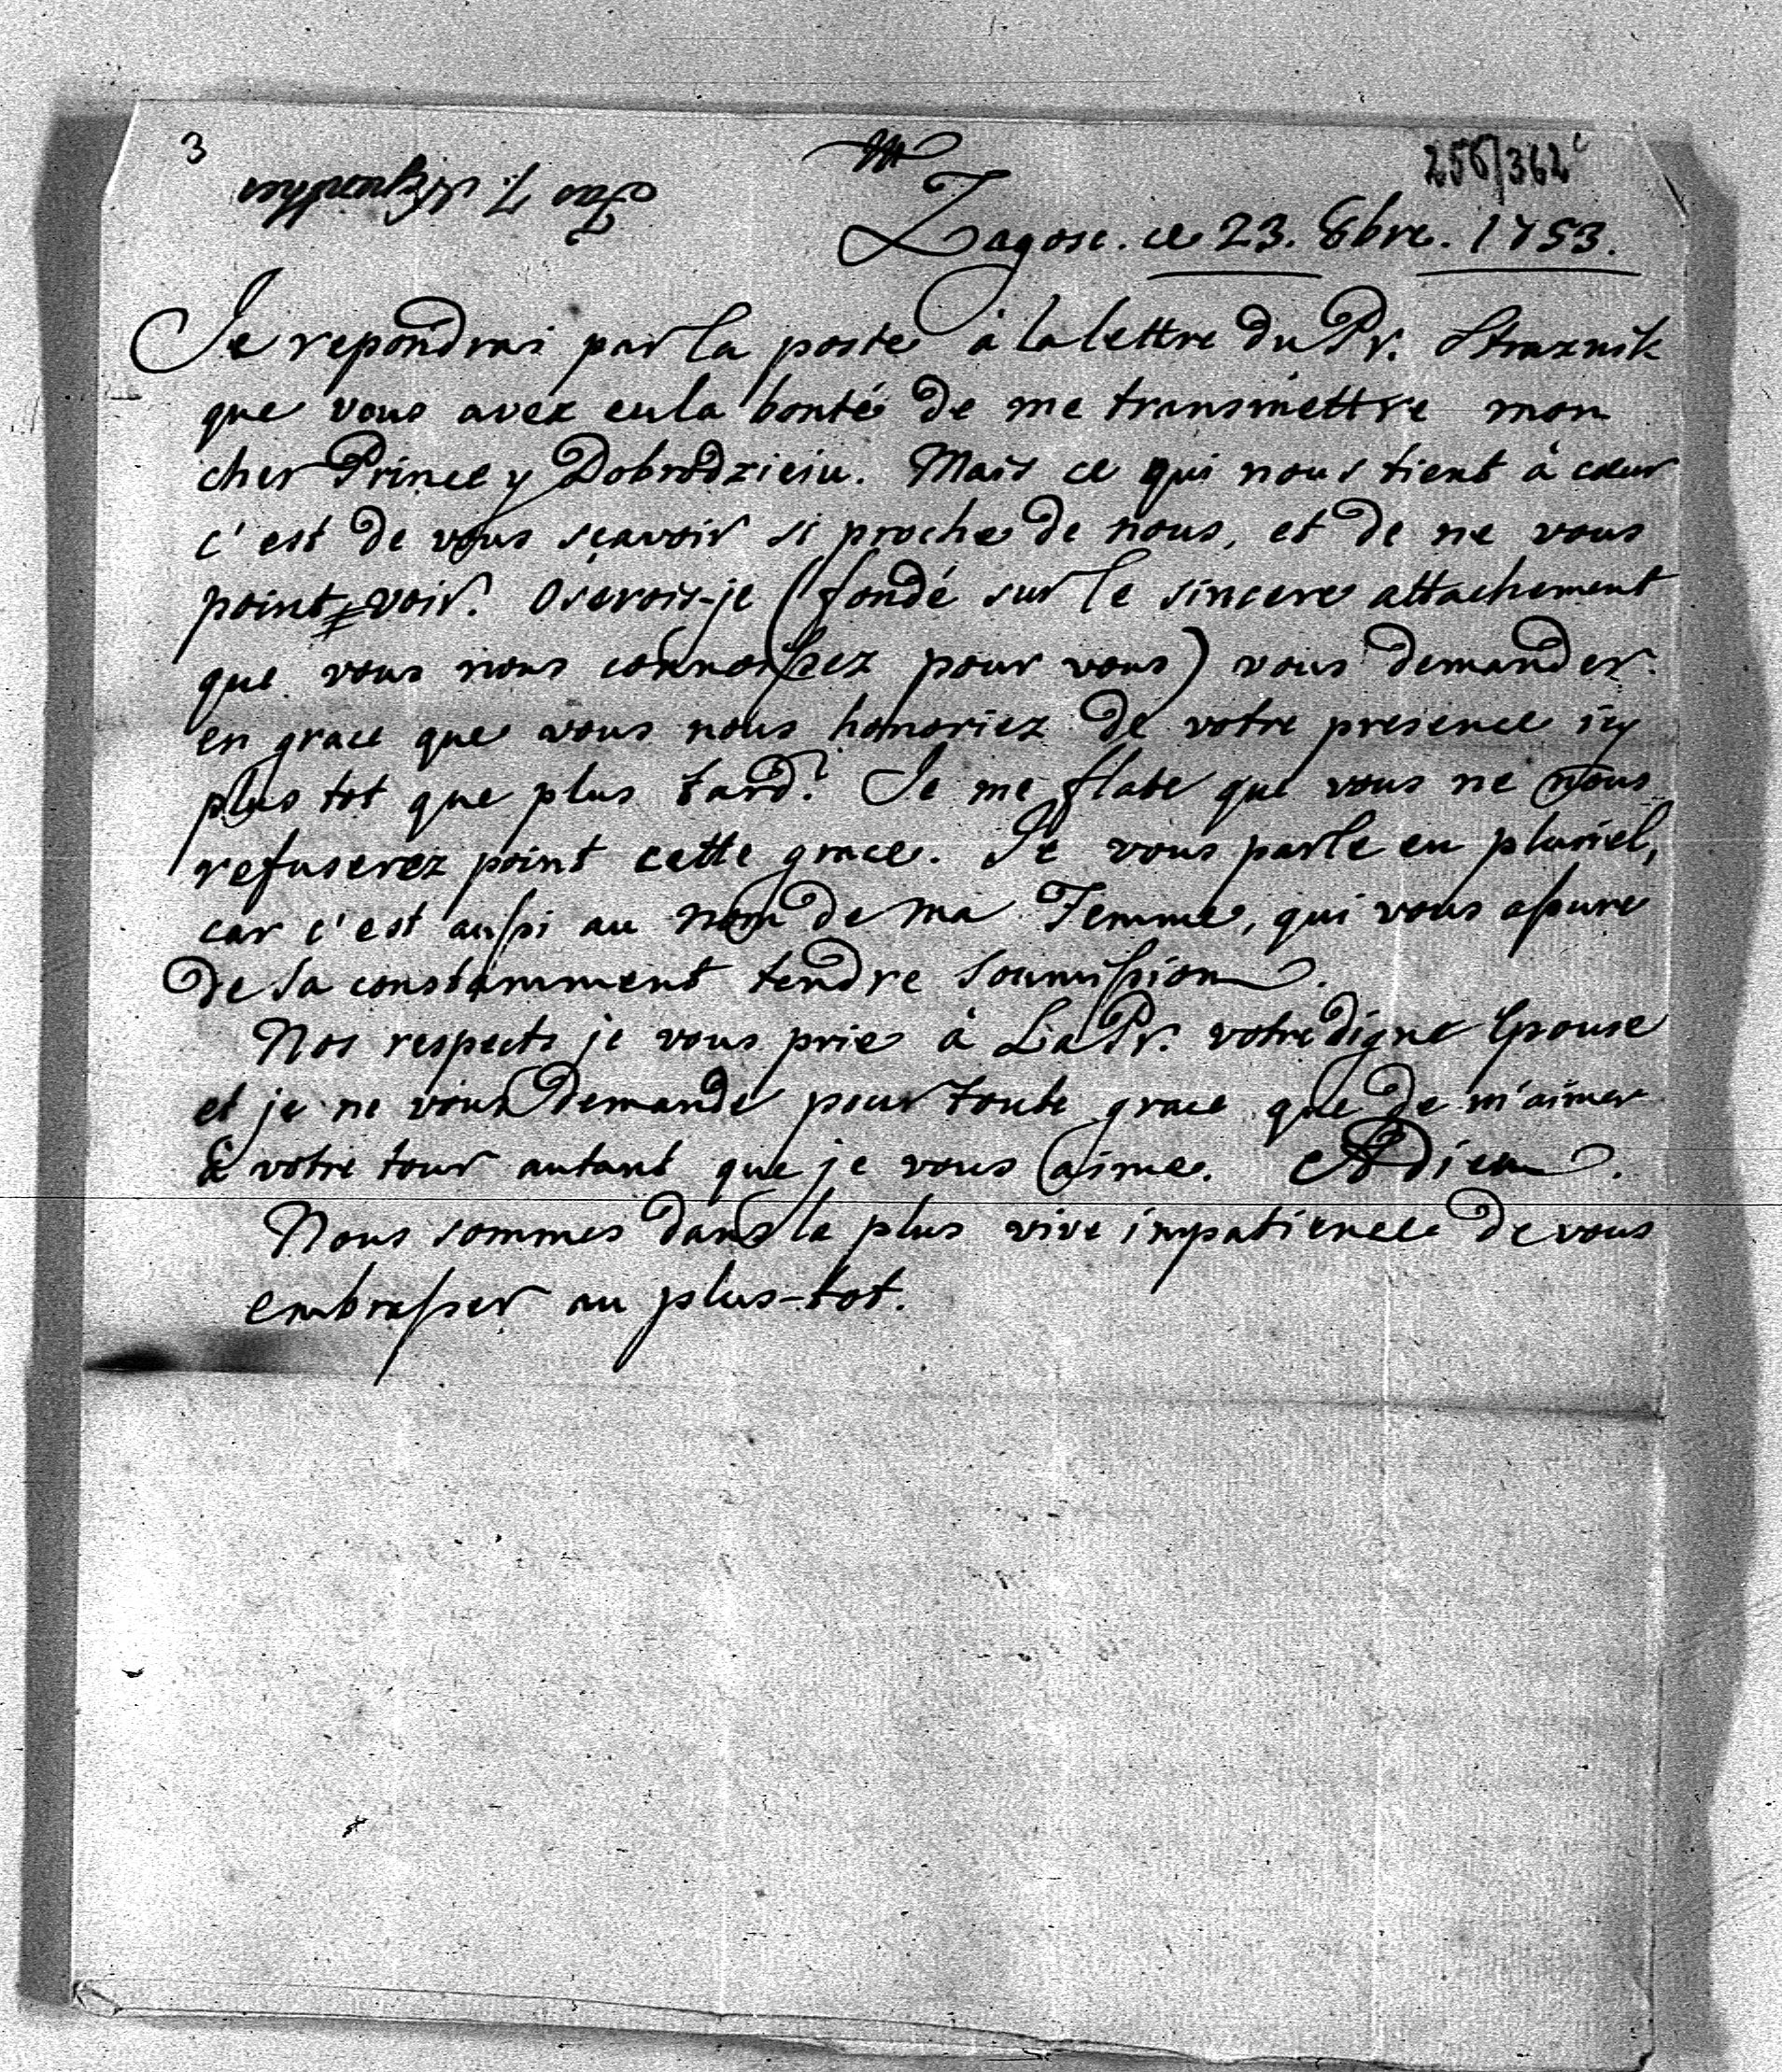 3
256/362
Zagosc. ce 23. 8bre. 1753.
Je repondrai par la poste à la lettre du Pr. Straznik
que vous avez eu la bonté de me transmettre mon
cher Prince y Dobrodzieiu. Mais ce qui nous tient à cœur
c'est de vous sçavoir si proche de nous, et de ne vous
point voir. Oserois-je (fondé sur le sincere attachement
que vous nous connoissez pour vous) vous demander
en grace que vous nous honoriez de votre presence icy
plus tot que plus tard? Je me flate que vous ne nous
refuserez point cette grace. Je vous parle en pluriel,
car c'est aussi au nom de ma Femme, qui vous assure
de sa constamment tendre soumission.
Nos respects je vous prie à La Pr. votre digne Epouse
et je ne vous demande pour toute grace que de m'aimer
à votre tour autant que je vous aime. Adieu.
Nous sommes dans la plus vive impatience de vous
embrasser au plus-tot.